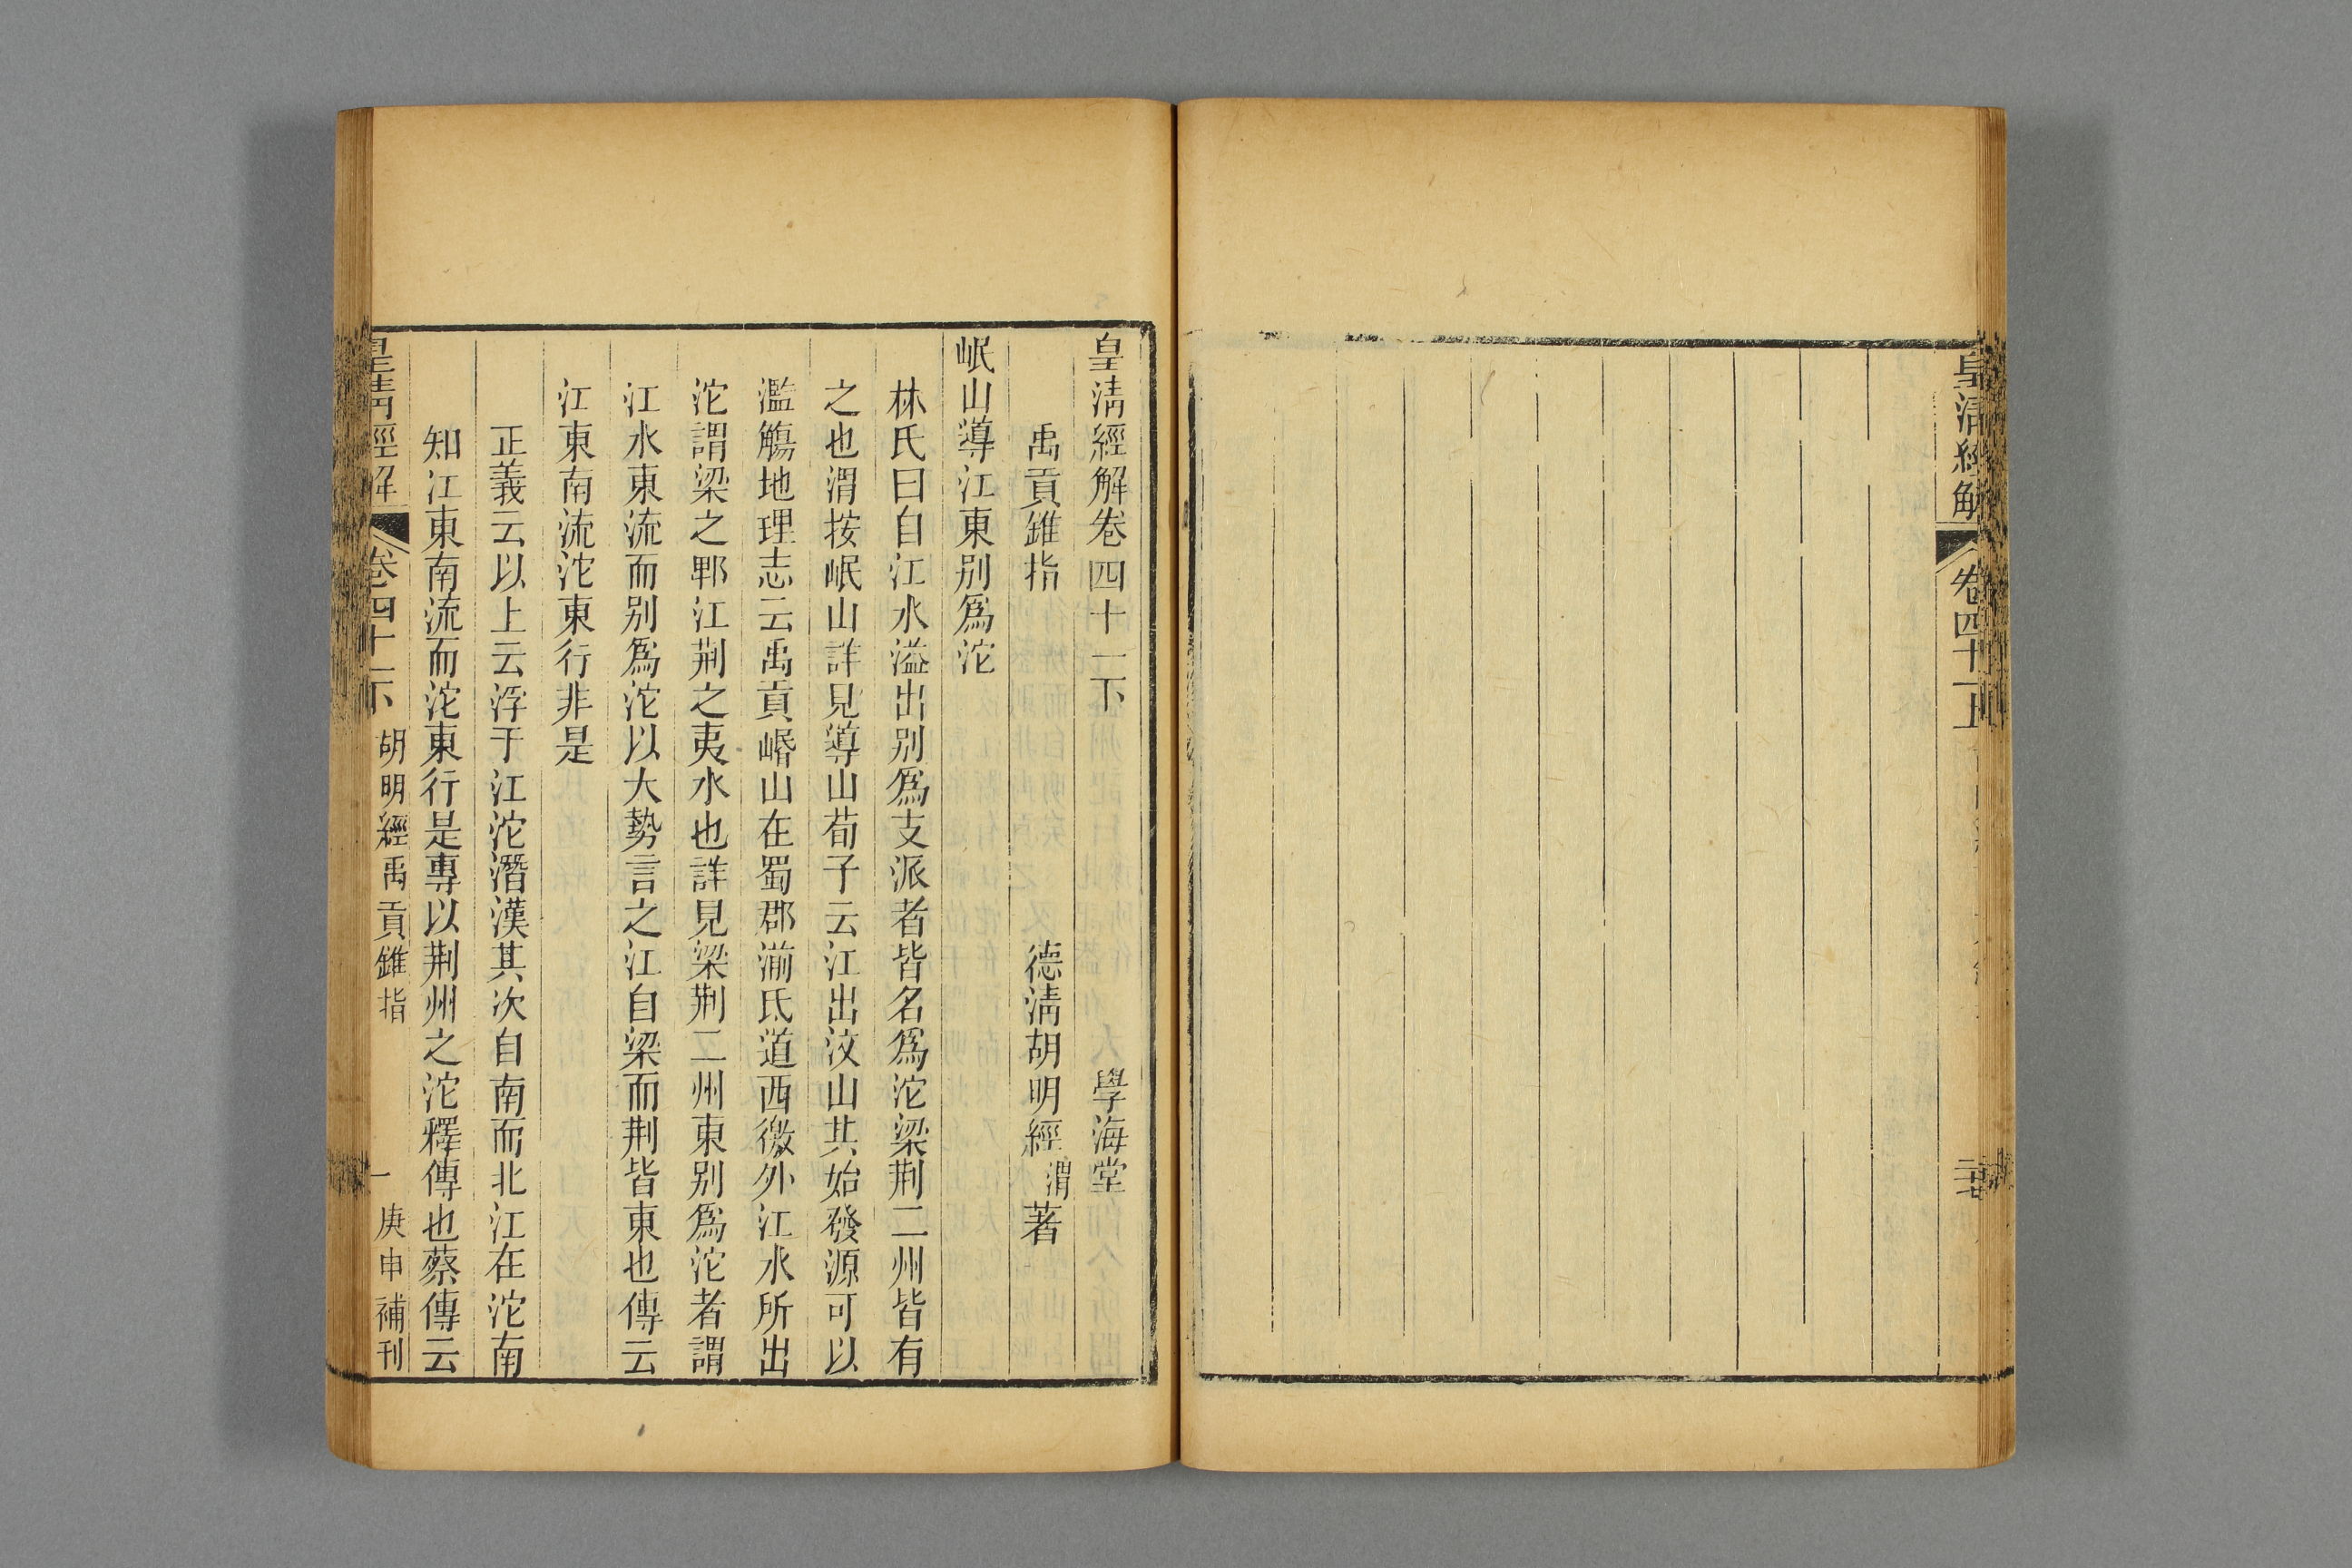 皇清經解
卷四十一上
皇清經解卷四十一下
學海堂
禹貢錐指
德清胡明經渭著
岷山導江東別爲沱
林氏曰自江水溢出別爲支派者皆名爲沱梁荆二州皆有
之也渭按岷山詳見導山荀子云江出汶山其始發源可以
濫觴地理志云禹貢㟭山在蜀郡湔氐道西徼外江水所出
沱謂梁之郫江荆之夷水也詳見梁荆二州東別爲沱者謂
江水東流而別爲沱以大勢言之江自梁而荆皆東也傳云
江東南流沱東行非是
正義云以上云浮于江沱潛漢其次自南而北江在沱南
知江東南流而沱東行是專以荆州之沱釋傳也蔡傳云
皇清經解
卷四十一下
胡明經禹貢錐指
一
庚申補刊